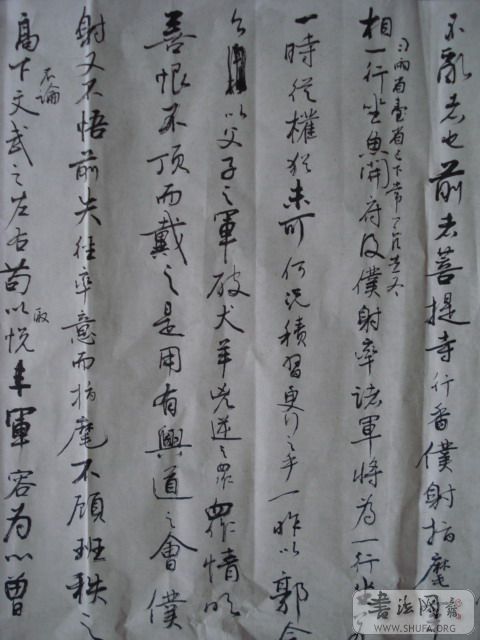 不亂者也前者菩提寺行香僕射指麾
与兩省臺省已下常
相一行坐魚開府及僕射率諸軍將為一行坐
一時從權猶未可何況積習更行之乎一昨以郭令
公以父子之軍破犬羊兇逆之眾眾情欣
喜恨不頂而戴之是用有興道之會僕
射又不悟前失徑率意而指麾不顧班秩之
高下不論文武之左右苟以取悅軍容為心曾
書法网
WWW.SHUFA.ORG